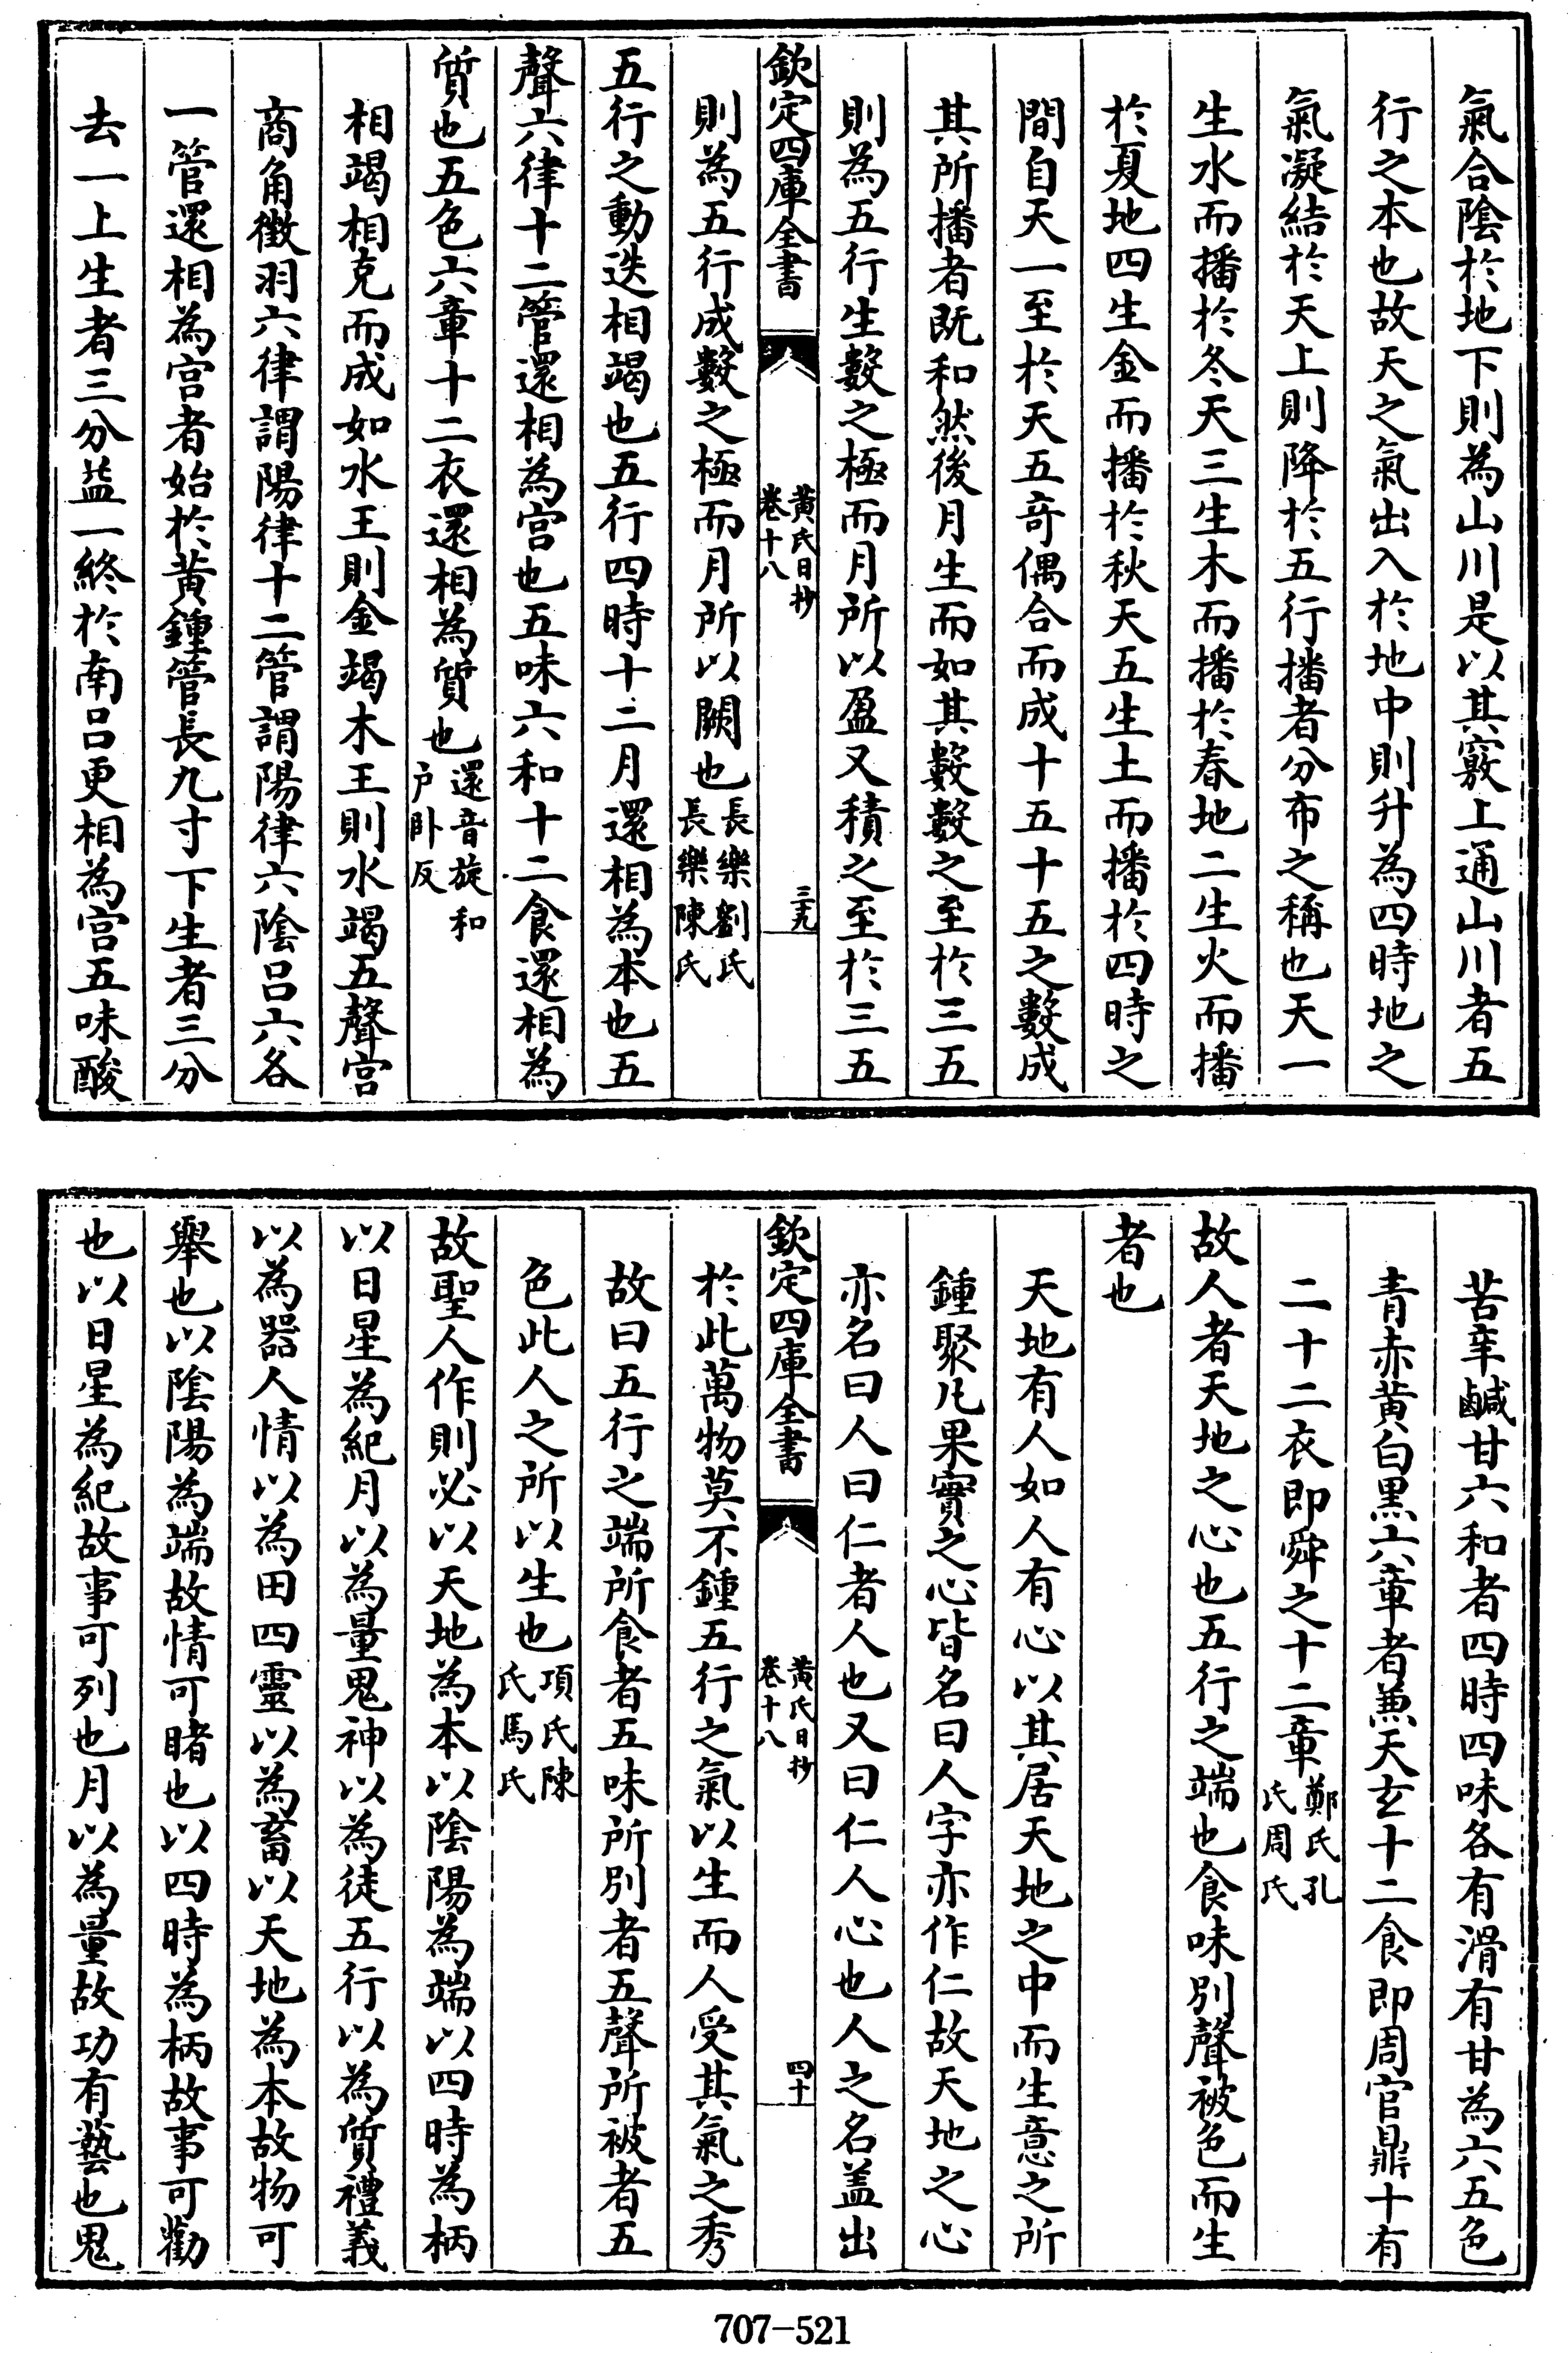 氣合陰於地下則為山川是以其竅上通山川者五
行之本也故天之氣出入於地中則升為四時地之
氣凝結於天上則降於五行播者分布之稱也天一
生水而播於冬天三生木而播於春地二生火而播
於夏地四生金而播於秋天五生土而播於四時之
間自天一至於天五奇偶合而成十五十五之數成
其所播者既和然後月生而如其數數之至於三五
則為五行生數之極而月所以盈又積之至於三五
欽定四庫全書
黃氏日抄
卷十八
三十九
則為五行成數之極而月所以闕也長樂劉氏
長樂陳氏
五行之動迭相竭也五行四時十二月還相為本也五
聲六律十二管還相為宮也五味六和十二食還相為
質也五色六章十二衣還相為質也還音旋和
戶卧反
相竭相克而成如水王則金竭木王則水竭五聲宮
商角徵羽六律謂陽律十二管謂陽律六陰呂六各
一管還相為宮者始於黃鍾管長九寸下生者三分
去一上生者三分益一終於南呂更相為宮五味酸
苦辛鹹甘六和者四時四味各有滑有甘為六五色
青赤黃白黑六章者兼天玄十二食即周官鼎十有
二十二衣即舜之十二章鄭氏孔
氏周氏
故人者天地之心也五行之端也食味別聲被色而生
者也
天地有人如人有心以其居天地之中而生意之所
鍾聚凡果實之心皆名曰人字亦作仁故天地之心
亦名曰人曰仁者人也又曰仁人心也人之名盖出
欽定四庫全書
黃氏日抄
卷十八
四十
於此萬物莫不鍾五行之氣以生而人受其氣之秀
故曰五行之端所食者五味所別者五聲所被者五
色此人之所以生也項氏陳
氏馬氏
故聖人作則必以天地為本以陰陽為端以四時為柄
以日星為紀月以為量鬼神以為徒五行以為質禮義
以為器人情以為田四靈以為畜以天地為本故物可
舉也以陰陽為端故情可睹也以四時為柄故事可勸
也以日星為紀故事可列也月以為量故功有藝也鬼
707-521